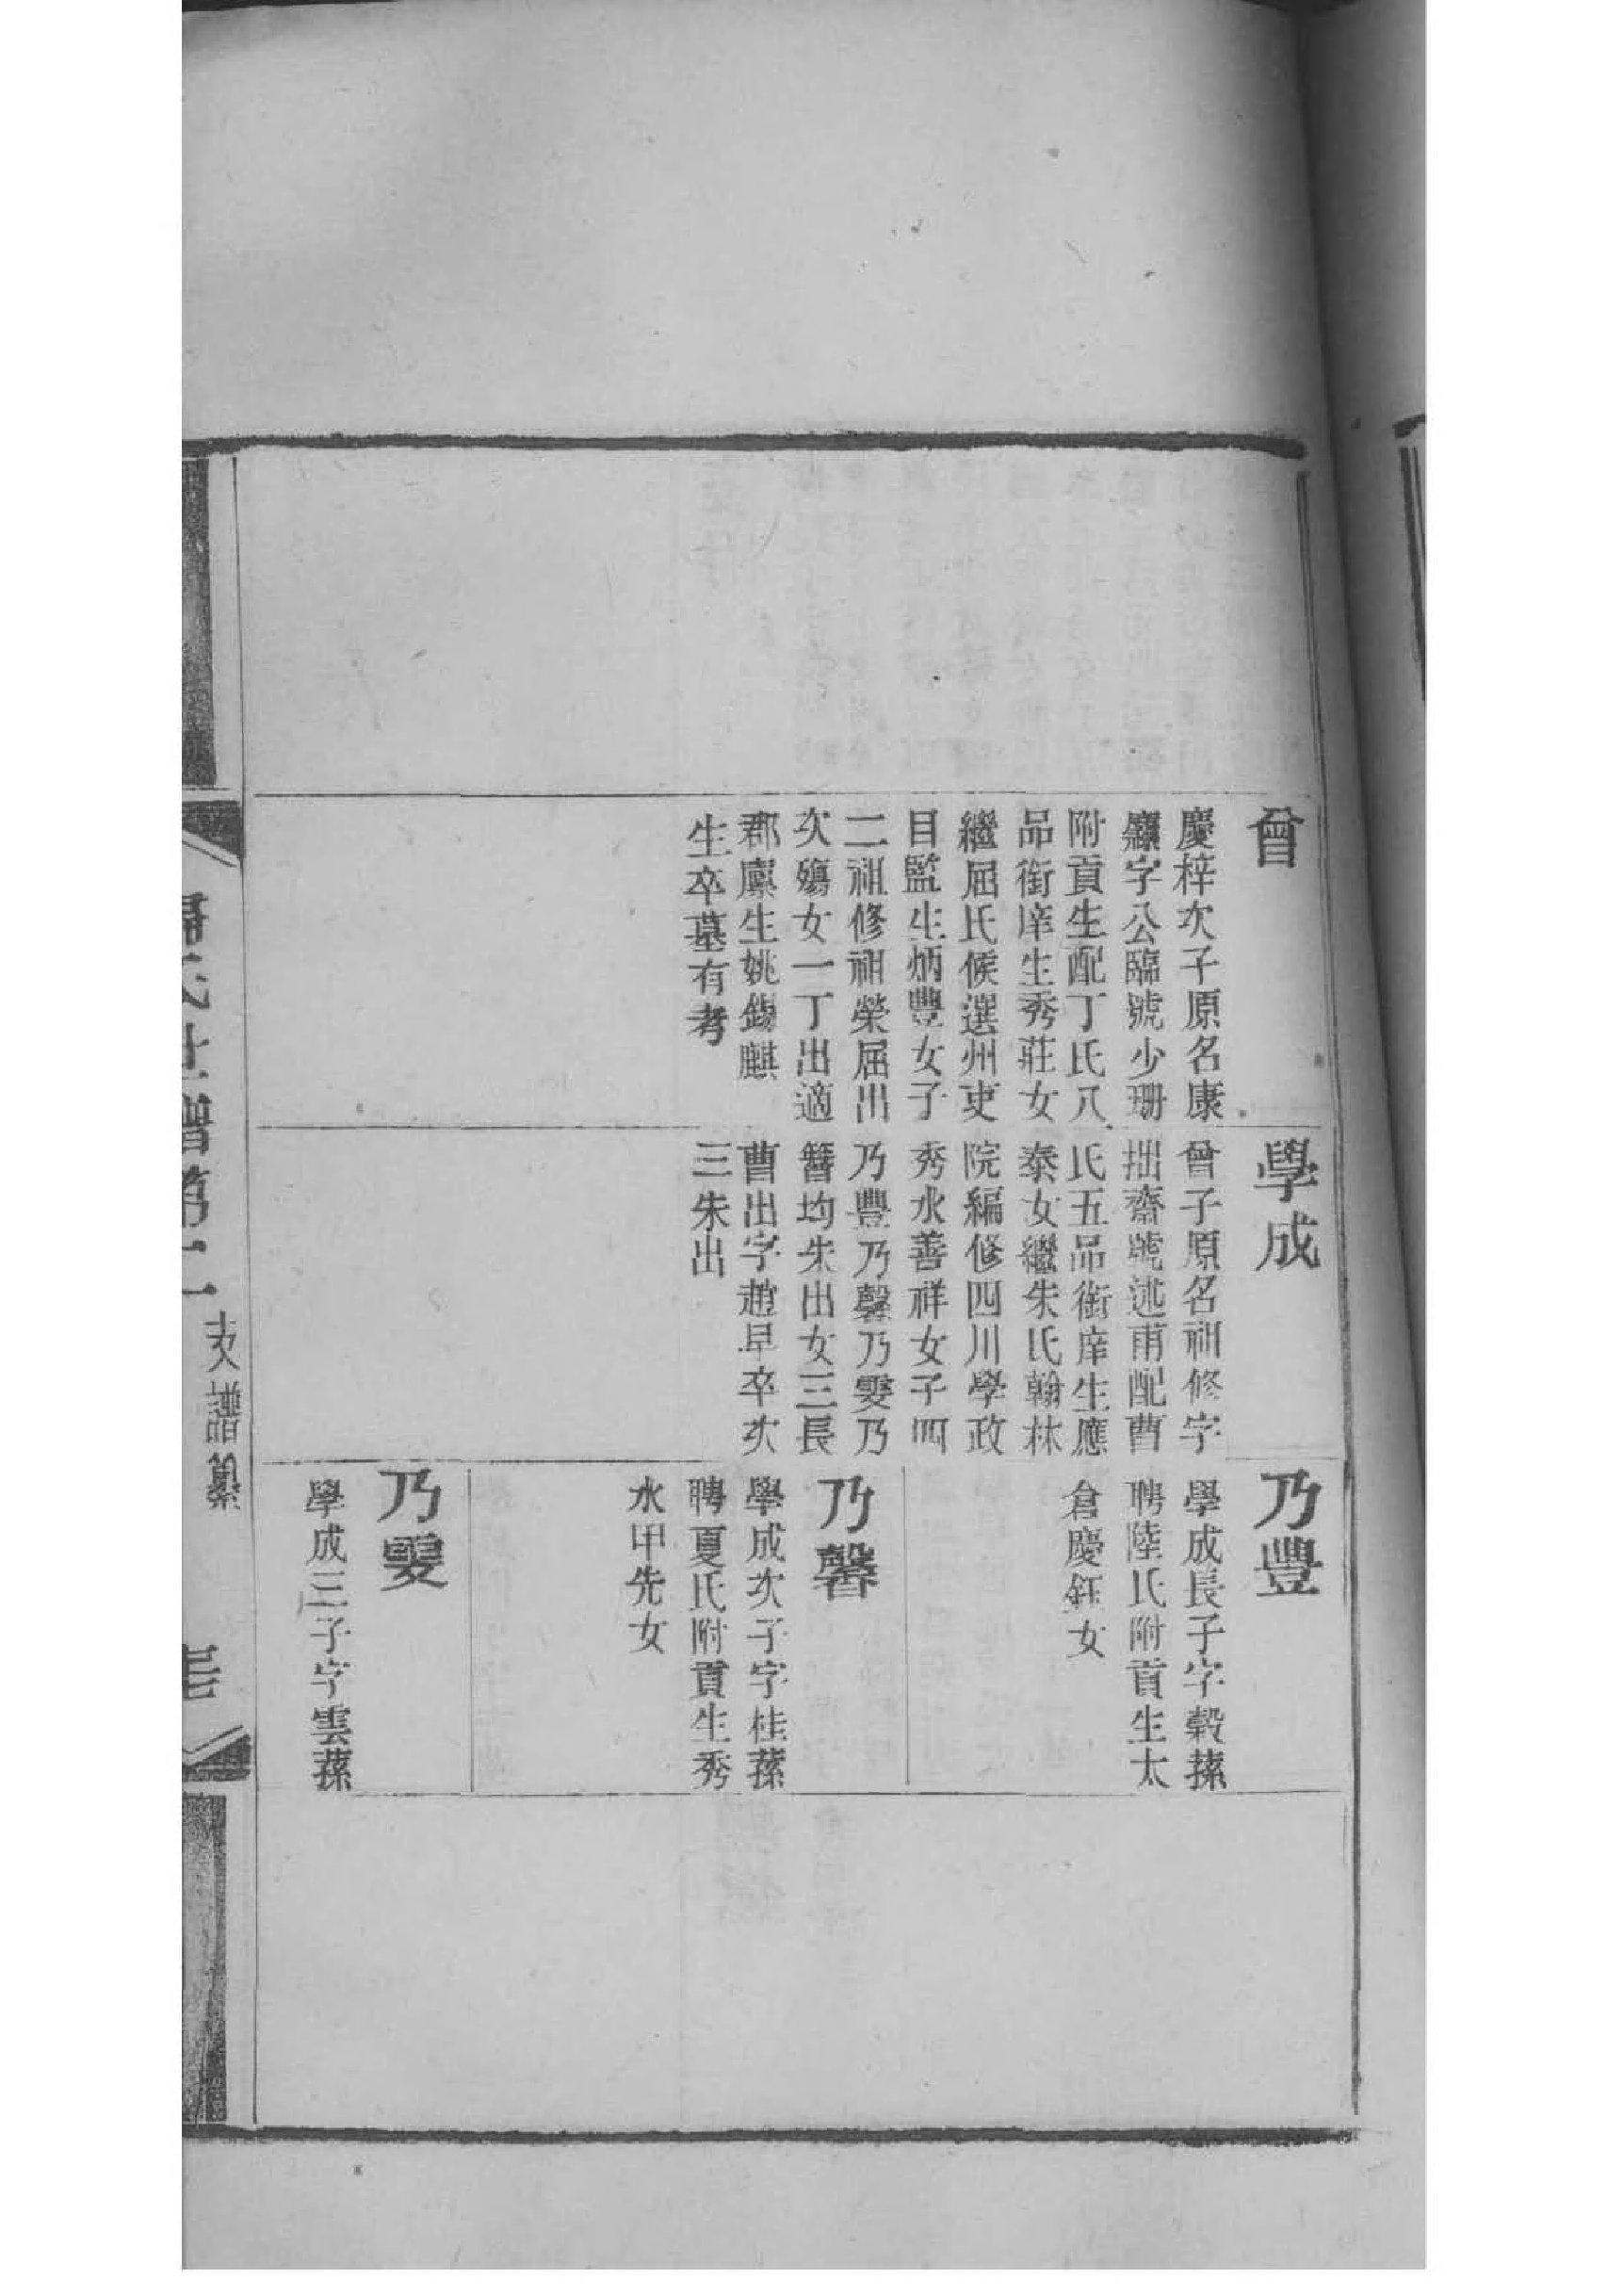 曾
慶梓次子原名康
字公臨號少珊
附貢生配丁氏八
品銜庠生秀莊女
繼屈氏候選州吏
目監生炳豐女子
二祖修祖榮屈出
次殤女一丁出適
郡廩生姚錫麒
生卒墓有考
學成
曾子原名祖修字
拙齋號述甫配曹
氏五品銜庠生應
泰女繼朱氏翰林
院編修四川學政
秀水善祥女子四
乃豐乃馨乃雯乃
簪均朱出女三長
曹出字趙早卒次
三朱出
乃豐
學成長子字穀蓀
聘陸氏附貢生太
倉慶鈺女
乃馨
學成次子字桂蓀
聘夏氏附貢生秀
水甲先女
乃雯
學成三子字雲蓀
氏世譜第十一
支譜纂